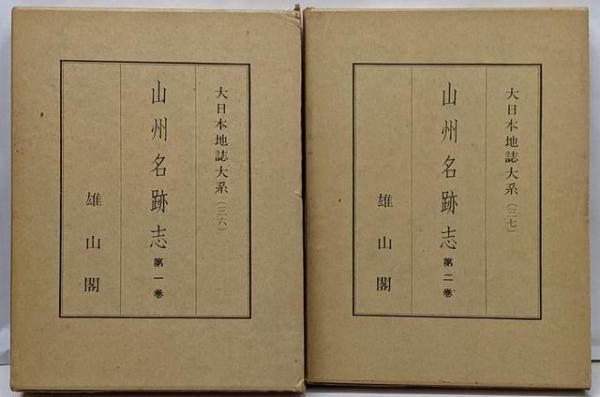 大日本地誌大系(三六)
山州名跡志 第一巻
雄山閣
大日本地誌大系(三七)
山州名跡志 第二巻
雄山閣